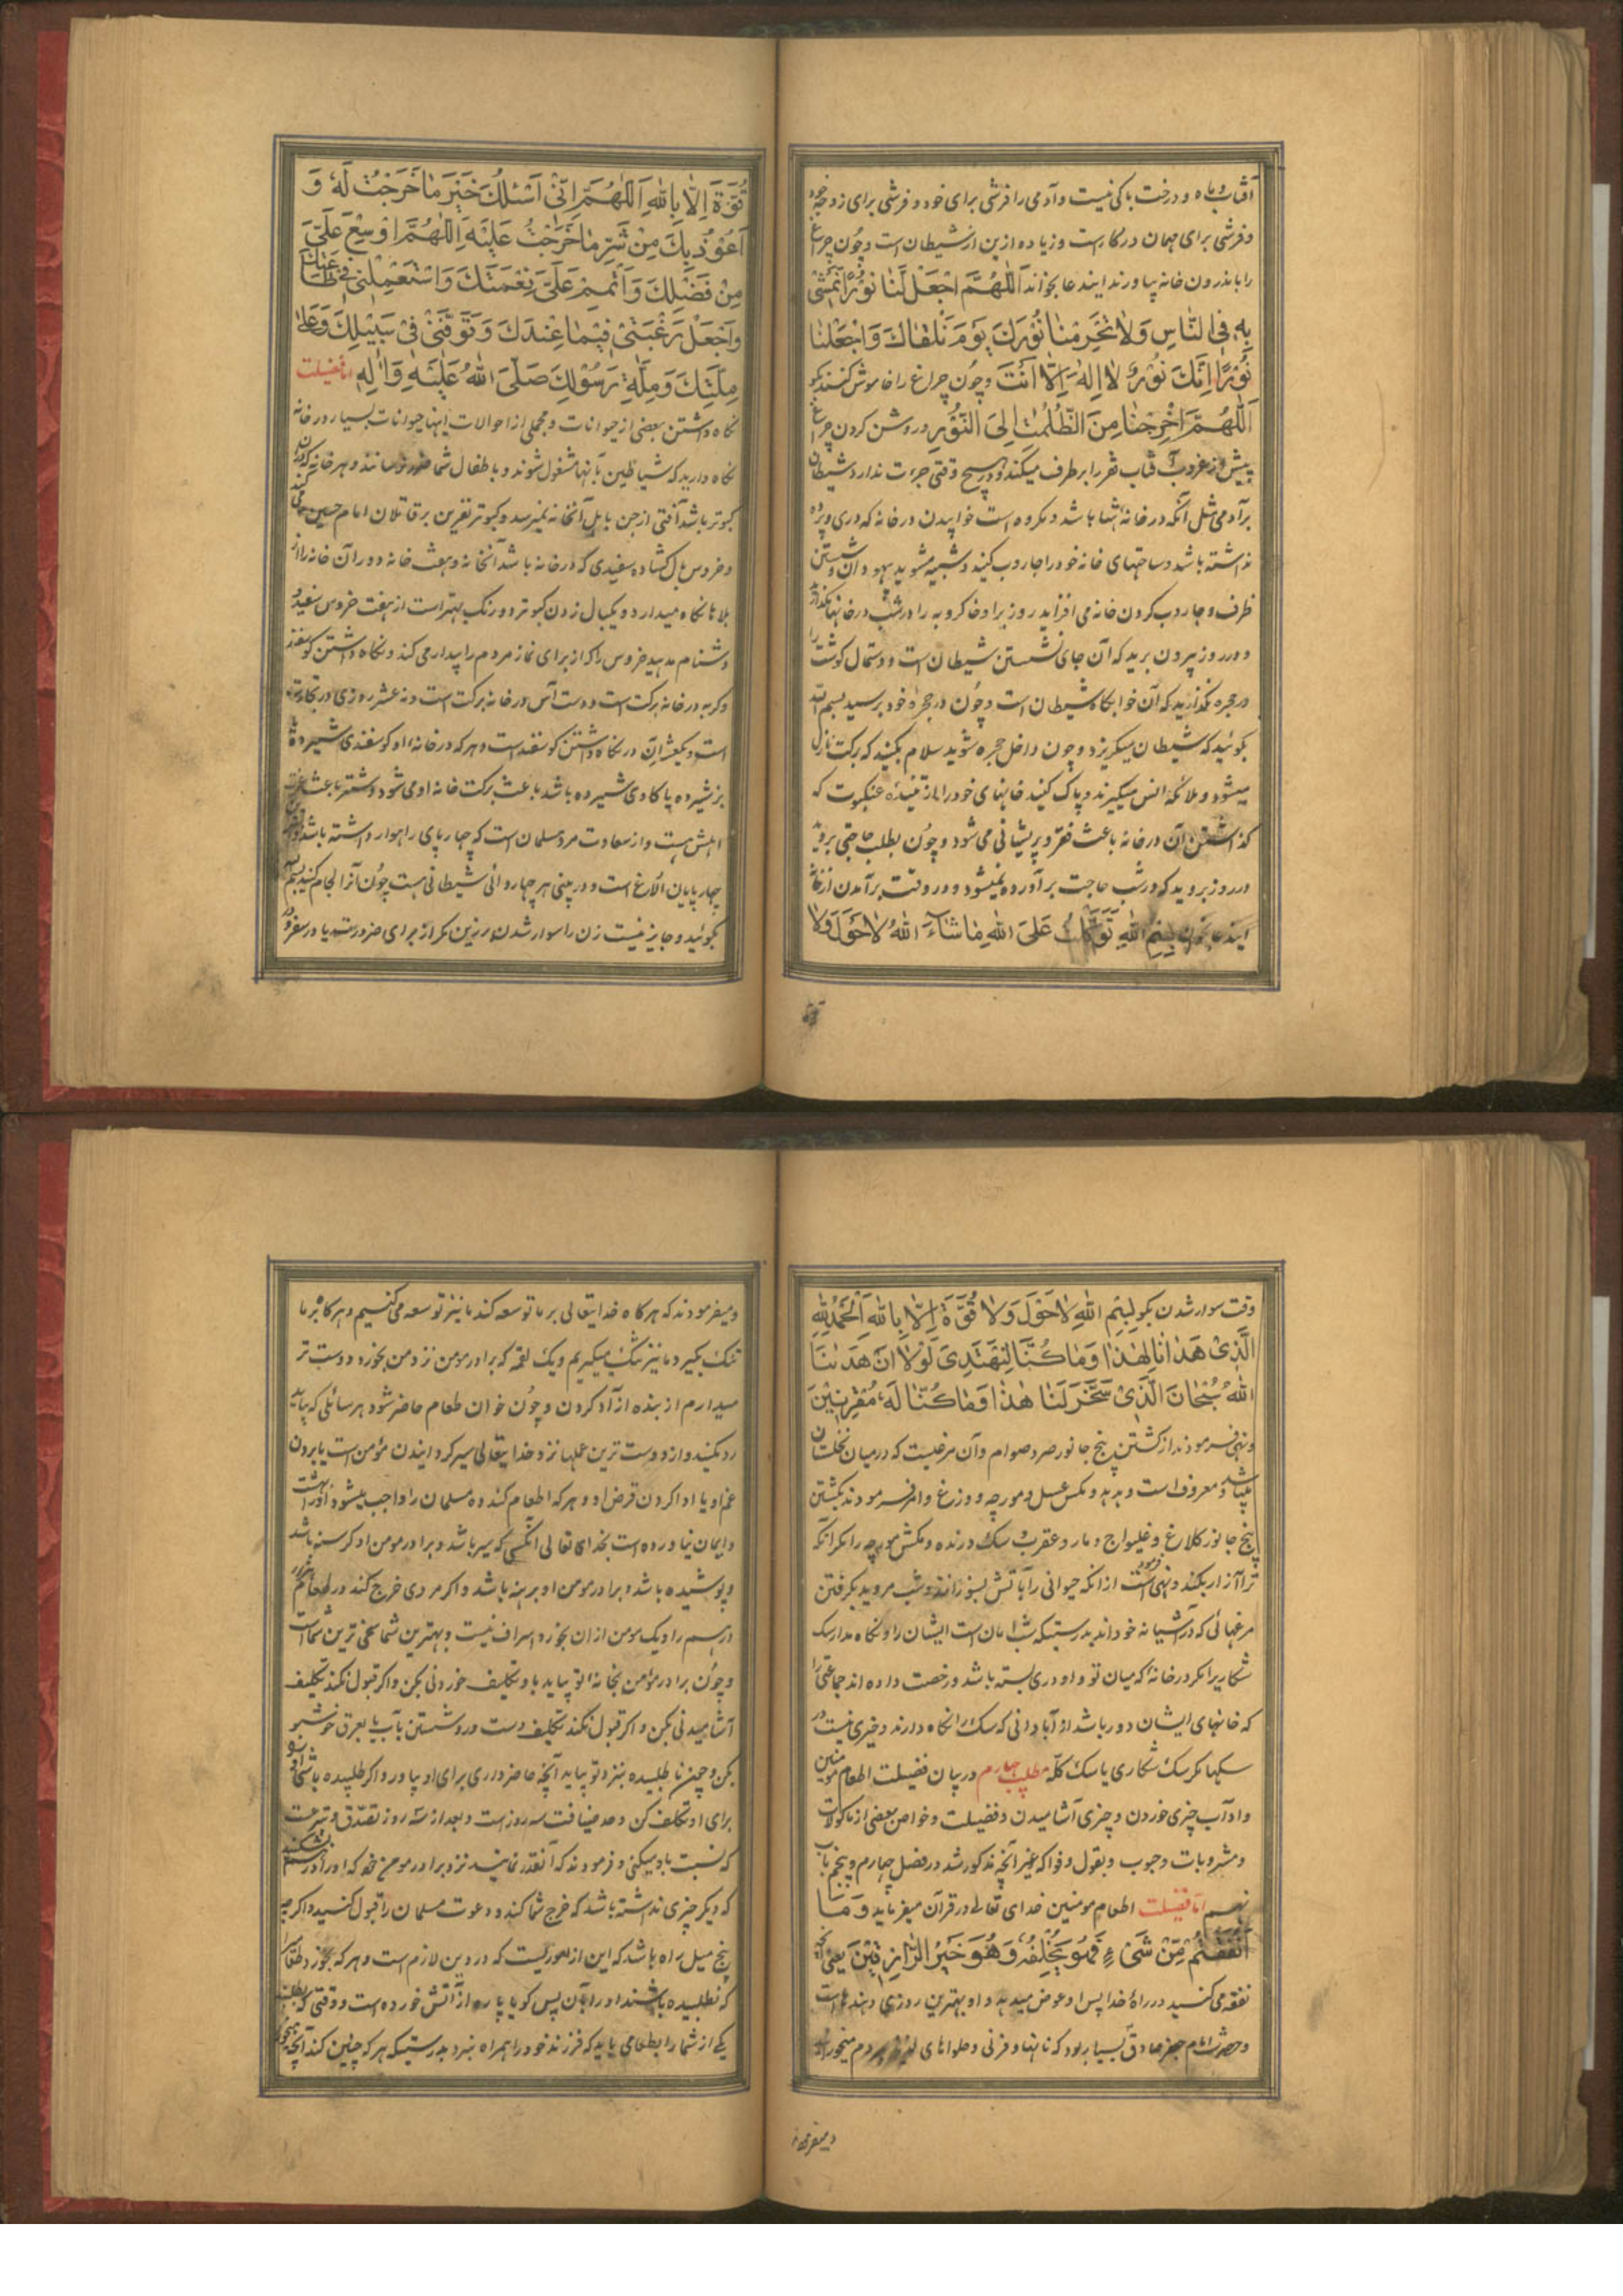 آفتاب و ماه و درخت باکی نیست و آدمی را فرشی برای خود و فرشی برای زوجه خود
و فرشی برای مهمان در کار است و زیاده از این از شیطان است و چون چراغ
را باندرون خانه بیاورند ایندعا بخواند اَللّهُمَّ اجْعَلْ لَنا نُورًا نَمْشی
بِهِ فِی النّاسِ وَلا تَحْرِمْنا نُورَكَ یَوْمَ نَلْقاكَ وَاجْعَلْنا
نُورًا اِنَّكَ نُورٌ لا اِلهَ اِلّا اَنْتَ و چون چراغ را خاموش کنند بگو
اَللّهُمَّ اَخْرِجْنا مِنَ الظُّلُماتِ اِلَی النُّورِ و روشن کردن چراغ
پیش از غروب آفتاب فقر را برطرف میکند و در هیچ وقتی جرءت ندارد شیطان
بر آدمی مثل آنکه در خانه تنها باشد و مکروه است خوابیدن در خانه که دری و پرده
نداشته باشد و ساحتهای خانه خود را جاروب کنید و شبیه مشوید بیهودان و شستن
ظرف و جاروب کردن خانه می افزاید روزی را و خاکروبه را در شب در خانها مگذارید
و در روز بیرون برید که آن جای نشستن شیطان است و دستمال گوشت را
در حجره مگذارید که آن خوابگاه شیطان است و چون در حجره خود برسید بسم الله
بگوئید که شیطان میگریزد و چون داخل حجره شوید سلام بکنید که برکت نازل
میشود و ملائکه انس میگیرند و پاک کنید خانهای خود را از تنیده عنکبوت که
گذاشتن آن در خانه باعث فقر و پریشانی می شود و چون بطلب حاجتی بروید
در روز بروید که در شب حاجت برآورده نمیشود و در وقت برآمدن از خانه
ایندعا بخوان بِسْمِ اللهِ تَوَكَّلْتُ عَلَی اللهِ ما شاءَ اللهُ لا حَوْلَ وَلا
قُوَّةَ اِلّا بِاللهِ اَللّهُمَّ اِنّی اَسْئَلُكَ خَیْرَ ما خَرَجْتُ لَهُ وَ
اَعُوذُ بِكَ مِنْ شَرِّ ما خَرَجْتُ عَلَیْهِ اَللّهُمَّ اَوْسِعْ عَلَیَّ
مِنْ فَضْلِكَ وَاَتْمِمْ عَلَیَّ نِعْمَتَكَ وَاسْتَعْمِلْنی فی طاعَتِكَ
وَاجْعَلْ رَغْبَتی فیما عِنْدَكَ وَتَوَفَّنی فی سَبیلِكَ وَعَلی
مِلَّتِكَ وَمِلَّةِ رَسُولِكَ صَلَّی اللهُ عَلَیْهِ وَآلِهِ اما فضیلت
نگاه داشتن بعضی از حیوانات و مجملی از احوالات اینها حیوانات بسیار در خانه
نگاه دارید که شیاطین بآنها مشغول شوند و باطفال شما ضرر نرسانند و هر خانه که در آن
کبوتر باشد آفتی از جن باهل آنخانه نمیرسد و کبوتر نفرین بر قاتلان امام حسین می کند
و خروس بال گشاده سفیدی که در خانه باشد آنخانه و هفت خانه دور آن خانه را از
بلاها نگاه میدارد و یکبال زدن کبوتر دو رنگ بهتر است از هفت خروس سفید و
دشنام مدهید خروس را که از برای نماز مردم را بیدار می کند و نگاه داشتن گوسفند
و گربه در خانه برکت است و دست آس در خانه برکت است و نه عشر روزی در تجارت
است و یکعشر آن در نگاه داشتن گوسفند است و هر که در خانه او گوسفندی شیرده یا
بز شیرده یا گاوی شیرده باشد باعث برکت خانه او می شود و شتر باعث عزت
اهلش است و از سعادت مرد مسلمان است که چهارپای راهوار داشته باشد
چهارپایان الاغ است و در بینی هر چهاروائی شیطانی هست چون آنرا لجام کنید بسم الله
بگوئید و جایز نیست زن را سوار شدن بر زین مگر از برای ضرورت یا در سفر و در
وقت سوار شدن بگو بِسْمِ اللهِ لا حَوْلَ وَلا قُوَّةَ اِلّا بِاللهِ اَلْحَمْدُ لِلّهِ
الَّذی هَدانا لِهذا وَما كُنّا لِنَهْتَدِیَ لَوْلا اَنْ هَدینَا
اللهُ سُبْحانَ الَّذی سَخَّرَ لَنا هذا وَما كُنّا لَهُ مُقْرِنینَ
و نهی فرمودند از کشتن پنج جانور صرد صوام و آن مرغیست که در میان نخلستان
میباشد و معروف است و هدهد و مگس عسل و مورچه و وزغ و امر فرمودند بکشتن
پنج جانور کلاغ و غلیواج و مار و عقرب و سک درنده و مکش مورچه را مگر آنکه
ترا آزار بکند و نهی فرموده است از آنکه حیوانی را بآتش بسوزانند و شب مروید بگرفتن
مرغهائی که در آشیانه خوداند بدرستیکه شب امان است ایشان را و نگاه مدار سک
شکاری را مگر در خانه که میان تو و او دری بسته باشد و رخصت داده اند جماعتی را
که خانهای ایشان دور باشد از آبادانی که سک را نگاه دارند و خیری نیست در
سکها مگر سک شکاری یا سک گله مطلب چهارم در بیان فضیلت اطعام مؤمنین
و آداب چیزی خوردن و چیزی آشامیدن و فضیلت و خواص بعضی از ماکولات
و مشروبات و حبوب و بقول و فواکه غیر آنچه مذکور شد در فصل چهارم و پنجم باب
نهم اما فضیلت اطعام مؤمنین خدای تعالی در قرآن میفرماید وَما
اَنْفَقْتُمْ مِنْ شَیْءٍ فَهُوَ یُخْلِفُهُ وَهُوَ خَیْرُ الرّازِقینَ یعنی آنچه
نفقه می کنید در راه خدا پس او عوض میدهد و او بهترین روزی دهنده هاست
و حضرت امام جعفر صادق بسیار بود که نانها و فرنی و حلواهای لذیذ بمردم میخوراندند
و میفرمودند
و میفرمودند که هرگاه خدایتعالی بر ما توسعه کند ما نیز توسعه می کنیم و هرگاه بر ما
تنک بگیرد ما نیز تنک میگیریم و یک لقمه که برادر مومن نزد من بخورد دوست تر
میدارم از بنده آزاد کردن و چون خوان طعام حاضر شود هر سائلی که بیاید
رد مکنید و از دوست ترین عملها نزد خدایتعالی سیر گردانیدن مؤمن است یا بردن
غم او یا ادا کردن قرض او و هر که اطعام کند ده مسلمان را واجب میشود او را بهشت
و ایمان نیاورده است بخدای تعالی آنکسی که سیر باشد و برادر مومن او گرسنه باشد
و پوشیده باشد و برادر مومن او برهنه باشد و اگر مردی خرج کند در طعام هزار
درهم را و یک مومن از ان بخورد اسراف نیست و بهترین شما سخی ترین شماست
و چون برادر مؤمن بخانه تو بیاید باو تکلیف خوردنی بکن و اگر قبول نکند تکلیف
آشامیدنی بکن و اگر قبول نکند تکلیف دست و رو شستن بآب یا بعرق خوشبو
بکن و چون ناطلبیده بنزد تو بیاید آنچه حاضر داری برای او بیاور و اگر طلبیده باشی او را
برای او تکلف کن و حد ضیافت سه روز است و بعد از سه روز تصدق و تبرعیست
که نسبت باو میکنی و فرمودند که آنقدر نمانید نزد برادر مومن خود که او را از
که دیگر چیزی نداشته باشد که خرج شما کند و دعوت مسلمان را قبول کنید و اگر چه
پنج میل راه باشد که این از امور یست که در دین لازم است و هر که بخورد طعامی را
که نطلبیده باشند او را بآن پس گویا پاره از آتش خورده است و وقتی که بطلبند
یکی از شما را بطعامی باید که فرزند خود را همراه نبرد بدرستیکه هر که چنین کند آنچه میخورد